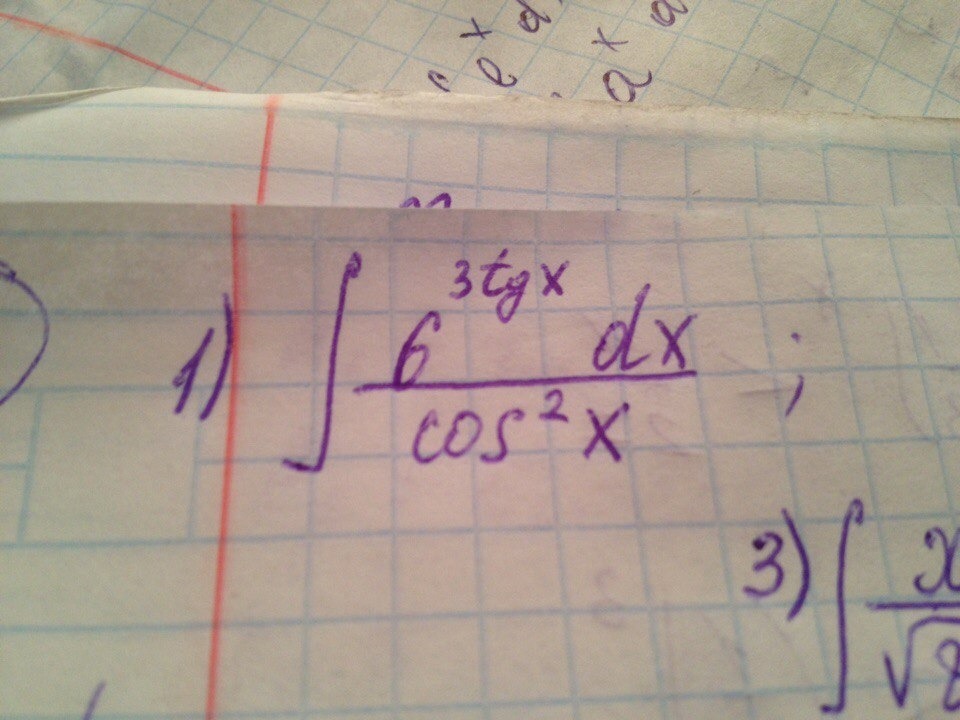 e^x d
a^x d
1) ∫ 6^{3tgx} dx / cos²x ;
3) ∫ x / √8